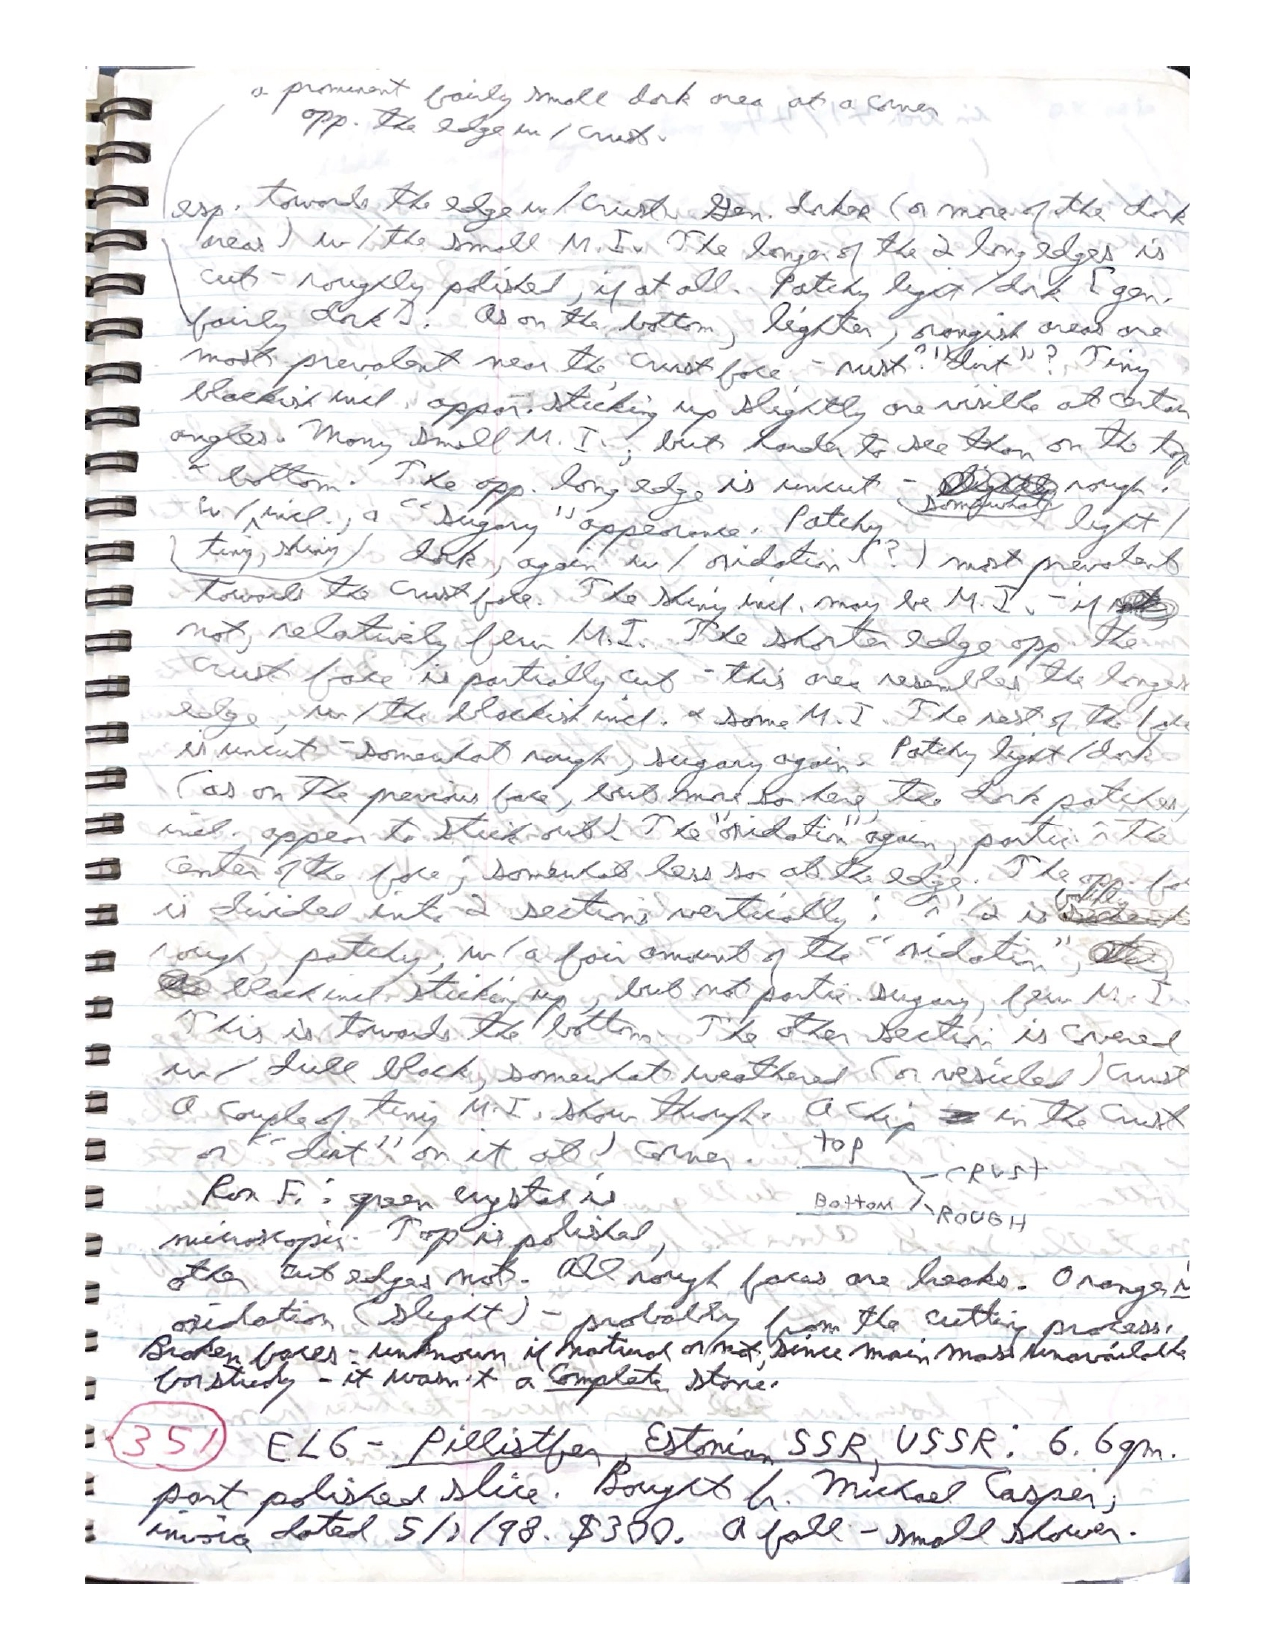 a prominent fairly small dark area at a corner
opp. the edge w/ crust.
esp. towards the edge w/ crust. Gen. darker (or more of the dark
areas) w/ the small M.I. The longer of the 2 long edges is
cut - roughly polished, if at all. Patchy light/dark [gen.
fairly dark]. As on the bottom, lighter, orangish areas are
most prevalent near the crust face - rust? "dirt"? Tiny
blackish incl. appar. sticking up slightly are visible at certain
angles. Many small M.I., but harder to see than on the top
& bottom. The opp. long edge is uncut - somewhat rough.
w/ tiny, shiny incl., a "sugary" appearance. Patchy light/
dark, again w/ oxidation (?) most prevalent
towards the crust face. The shiny incl. may be M.I. - if
not, relatively few M.I. The shorter edge opp. the
crust face is partially cut - this area resembles the longer
edge, w/ the blackish incl. & some M.I. The rest of the face
is uncut - somewhat rough, sugary again. Patchy light/dark
(as on the previous face, but more so here, the dark patches,
incl. appear to stick out). The "oxidation", again, partic. in the
center of the face; somewhat less so at the edge. The opp. fa
is divided into 2 sections vertically: 1/2 is
rough, patchy, w/ a fair amount of the "oxidation",
black incl. sticking up, but not partic. sugary, few M.I.
This is towards the bottom. The other section is covered
w/ dull black, somewhat weathered (or vesicled) crust
A couple of tiny M.I. show through. A chip in the crust
or "dirt" on it at 1 corner.
Top
CRUST
Bottom
ROUGH
Ron F.: green crystal is
microscopic. Top is polished,
other cut edges not. All rough faces are breaks. Orange
oxidation (slight) - probably from the cutting process.
Broken faces - unknown if natural or not, since main mass unavailable
for study - it wasn't a complete stone.
351 EL6 - Pillistfer, Estonian SSR, USSR: 6.6 gm.
part polished slice. Bought fr. Michael Casper;
invoice dated 5/1/98. $300. A fall - small shower.